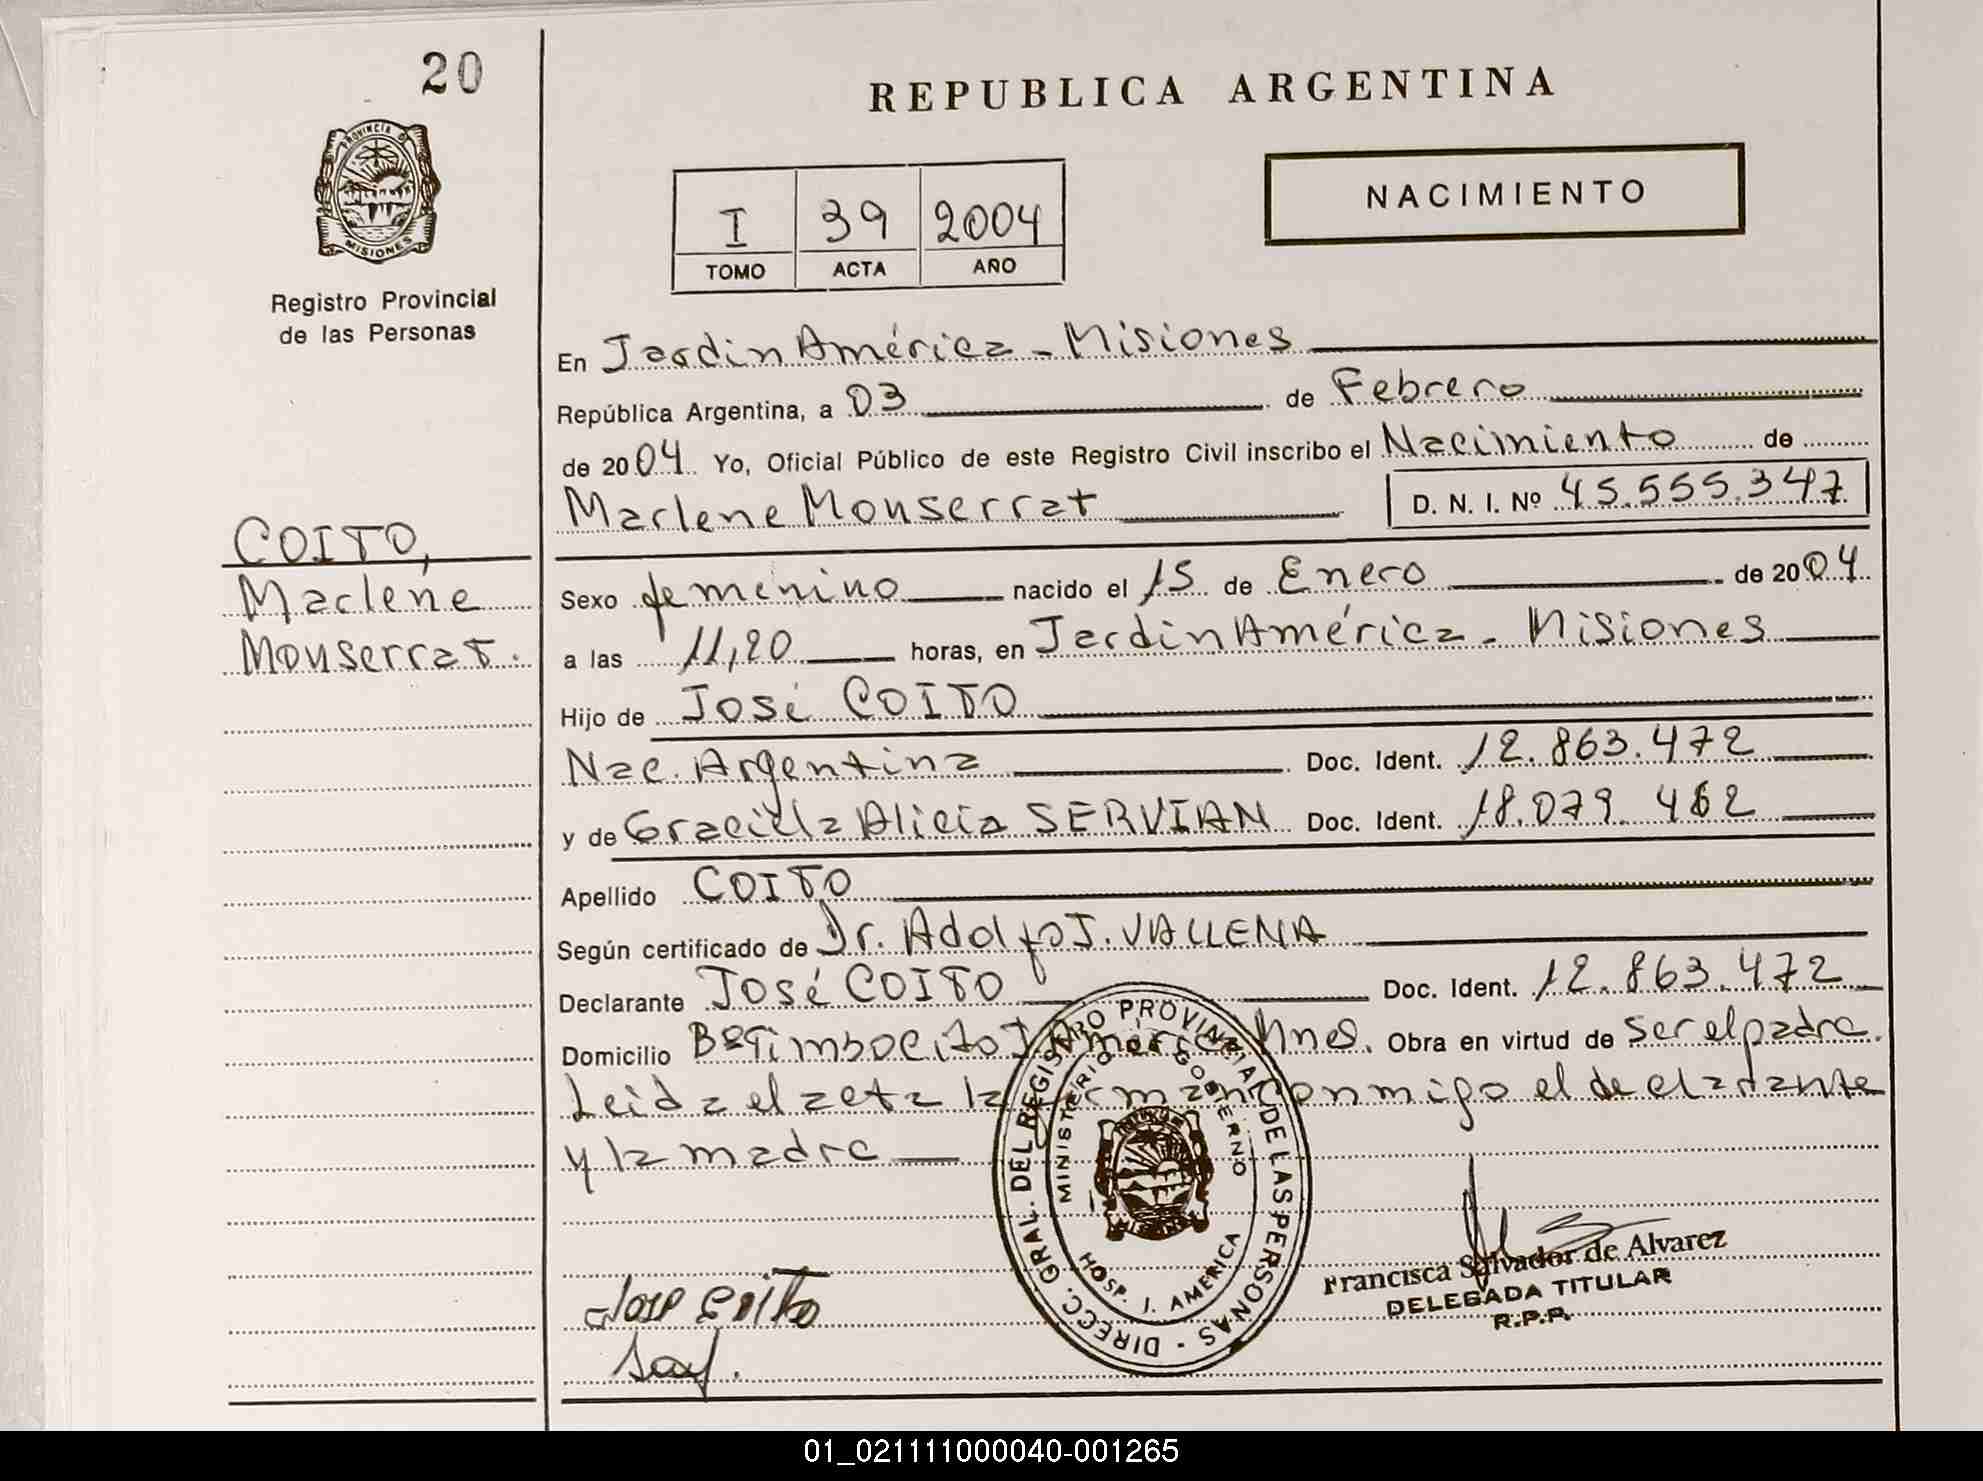 20
REPUBLICA ARGENTINA
PROVINCIA DE
MISIONES
Registro Provincial
de las Personas
I 39 2004
TOMO ACTA AÑO
NACIMIENTO
En Jardin América - Misiones
República Argentina, a 03 de Febrero
de 2004 Yo, Oficial Público de este Registro Civil inscribo el Nacimiento de
Marlene Monserrat D. N. I. Nº 45.555.347
COITO,
Marlene
Monserrat.
Sexo femenino nacido el 15 de Enero de 2004
a las 11,20 horas, en Jardin América - Misiones
Hijo de José COITO
Nac. Argentina Doc. Ident. 12.863.472
y de Graciela Alicia SERVIAN Doc. Ident. 18.079.462
Apellido COITO
Según certificado de Dr. Adolfo J. VALLENA
Declarante José COITO Doc. Ident. 12.863.472
Domicilio Bº Timbocito J. América Mnes. Obra en virtud de ser el padre.
Leida el acta la firman conmigo el declarante
y la madre
DIRECC. GRAL. DEL REGISTRO PROVINCIAL DE LAS PERSONAS -
MINISTERIO GOBIERNO
HOSP. J. AMERICA
Francisca Salvador de Alvarez
DELEGADA TITULAR
R.P.P.
Jose Coito
01_021111000040-001265